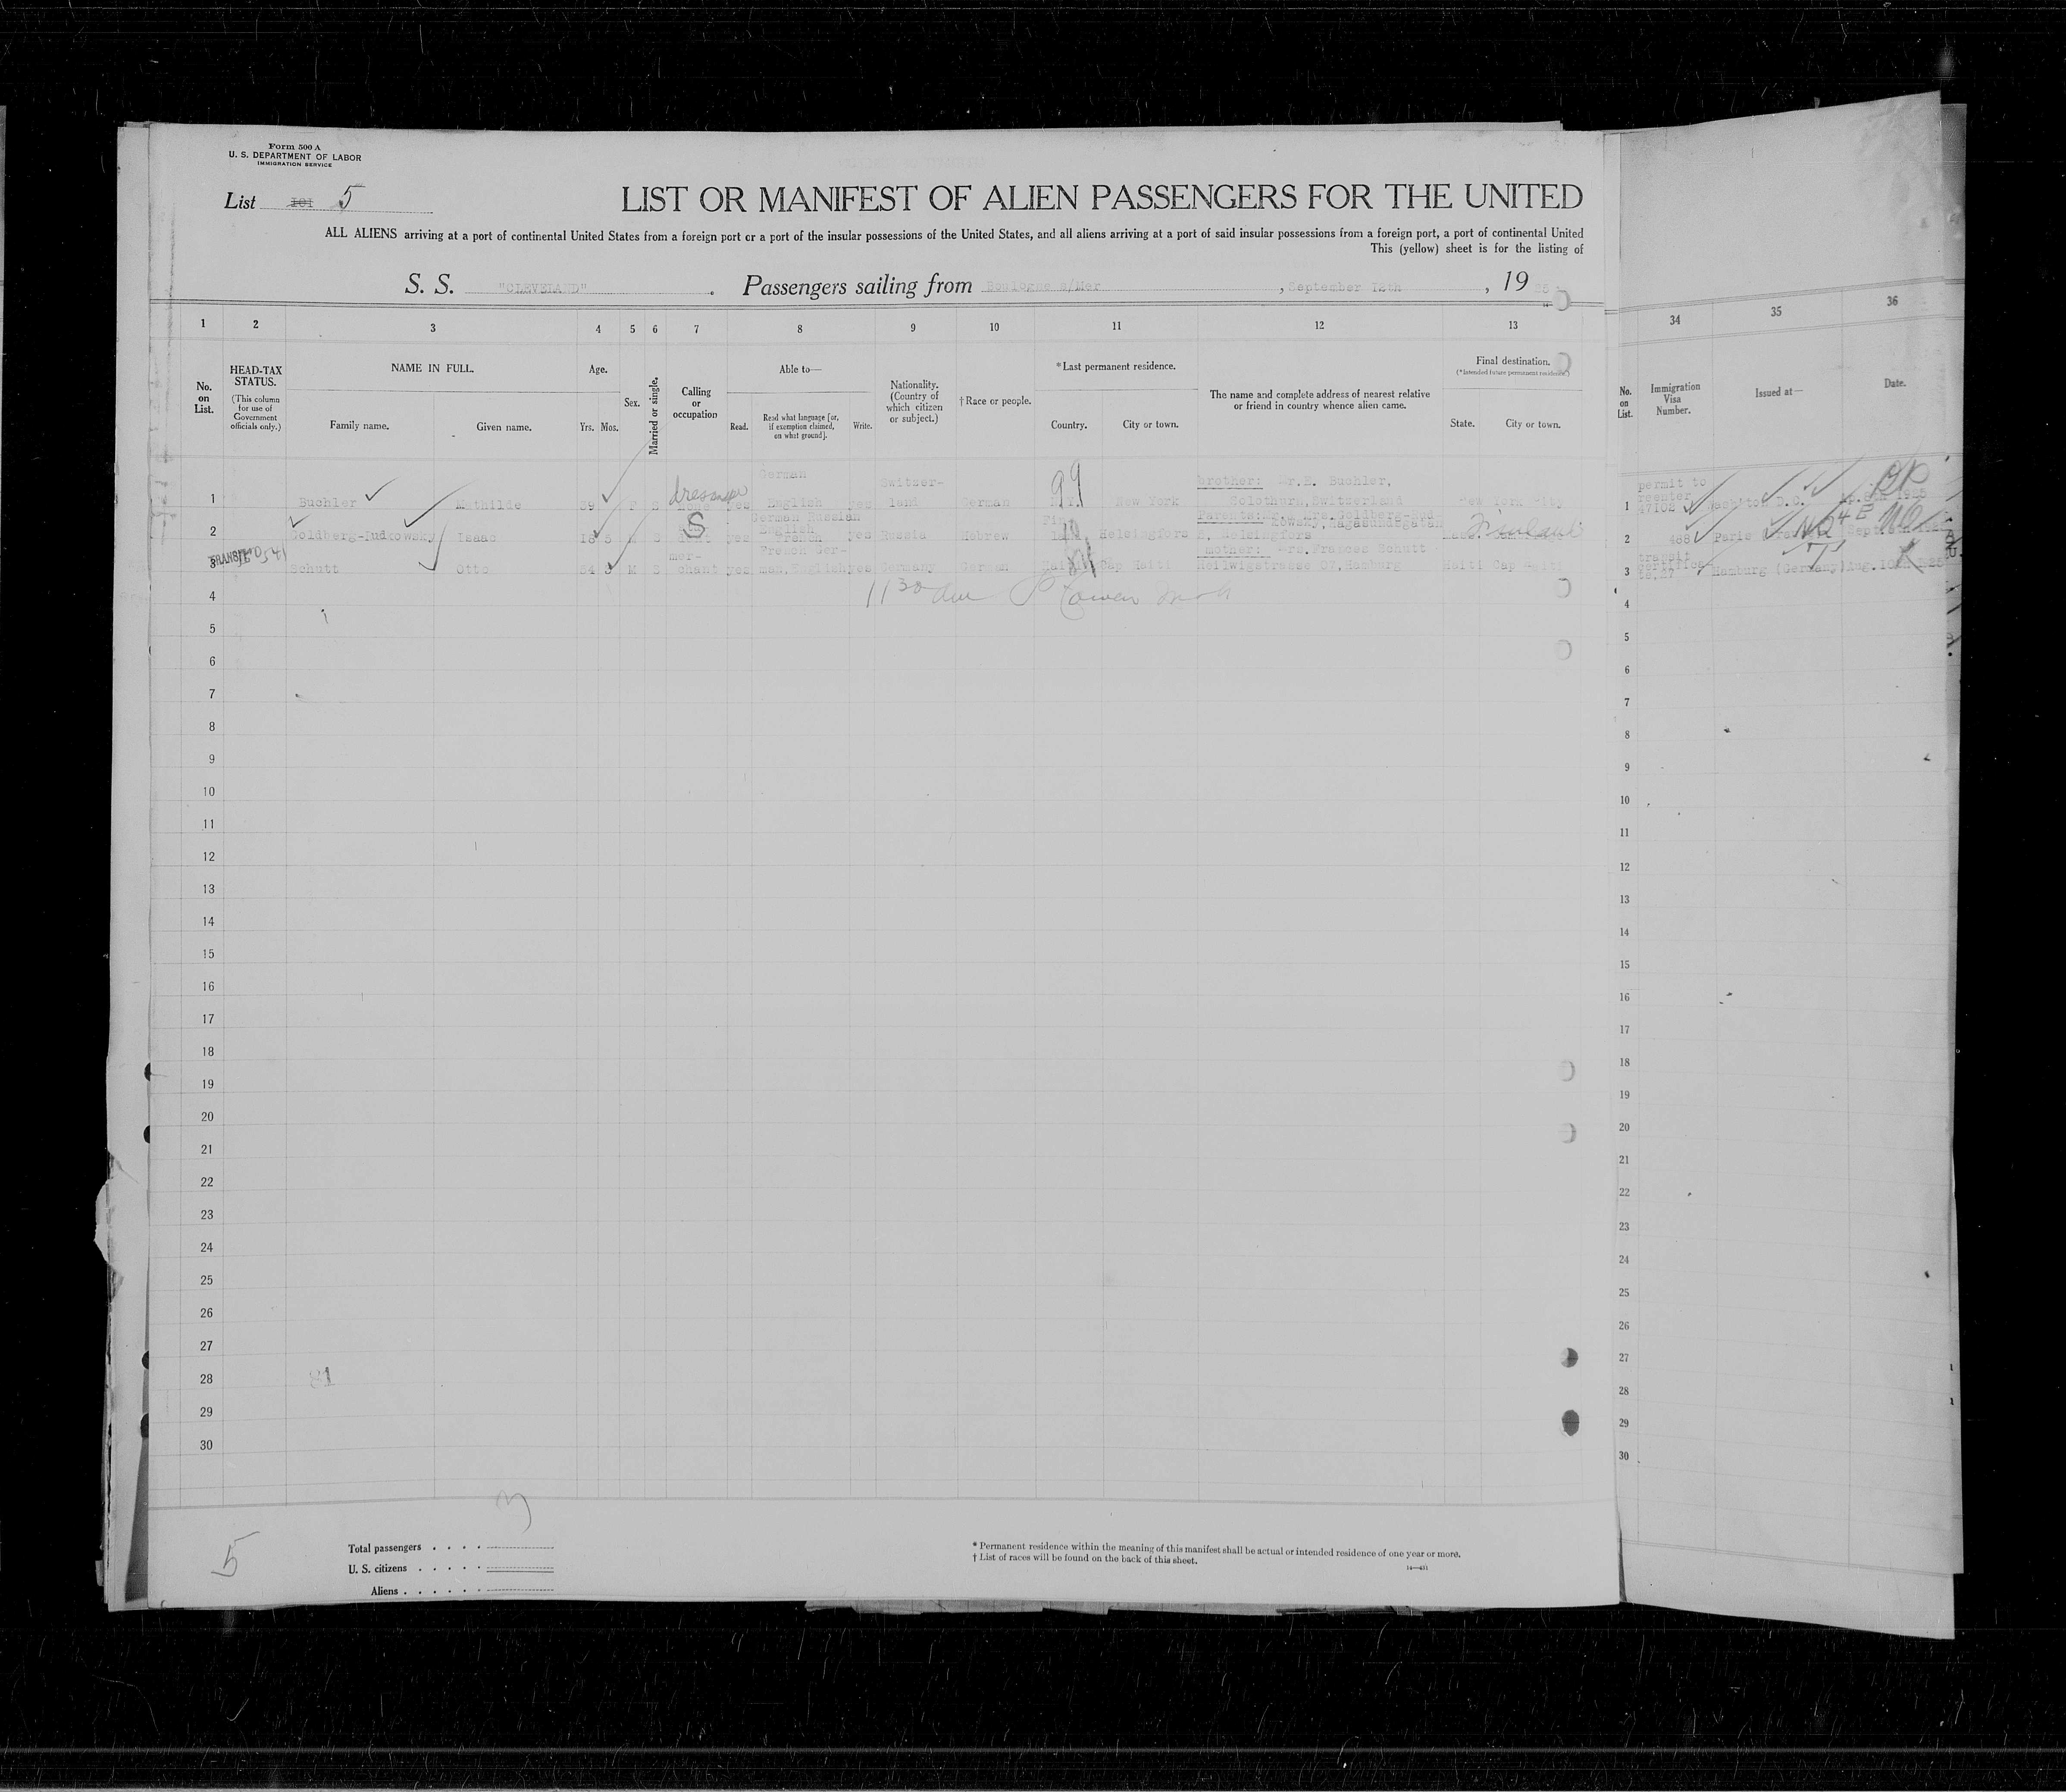 Form 500 A
U. S. DEPARTMENT OF LABOR
IMMIGRATION SERVICE
List 101 5
LIST OR MANIFEST OF ALIEN PASSENGERS FOR THE UNITED
ALL ALIENS arriving at a port of continental United States from a foreign port or a port of the insular possessions of the United States, and all aliens arriving at a port of said insular possessions from a foreign port, a port of continental United
This (yellow) sheet is for the listing of
S. S. "CLEVELAND". Passengers sailing from Boulogne s/Mer, September 12th, 19
1 2 3 4 5 6 7 8 9 10 11 12 13 34 35 36
No. on List.
HEAD-TAX STATUS.
(This column for use of Government officials only.)
NAME IN FULL.
Family name. Given name.
Age.
Yrs. Mos.
Sex.
Married or single.
Calling or occupation
Able to—
Read. Read what language [or, if exemption claimed, on what ground]. Write.
Nationality. (Country of which citizen or subject.)
†Race or people.
*Last permanent residence.
Country. City or town.
The name and complete address of nearest relative or friend in country whence alien came.
Final destination.
(*Intended future permanent residence.)
State. City or town.
No. on List.
Immigration Visa Number.
Issued at—
Date.
1 Buchler Mathilde 39 F S yes German English yes Switzer-land German 99 N.Y. New York brother: Mr.E. Buchler, Solothurn,Switzerland New York City
1 permit to reenter 47102 D.C.
2 Goldberg-Rudkowsky Isaac 18 5 M S S yes German Russian English French yes Russia Hebrew Helsingfors Parents: Mrs. Goldberg-Rud-kowsky, Helsingfors Finland
2 488 Paris
TRANSIT
3 Schutt Otto 54 M S mer-chant yes French Ger-man,English yes Germany German Haiti Cap Haiti mother: Mrs. Frances Schutt Heilwigstrasse Hamburg Haiti Cap Haiti
3 transit Hamburg (Germany) Aug.
1130
4 4
5 5
6 6
7 7
8 8
9 9
10 10
11 11
12 12
13 13
14 14
15 15
16 16
17 17
18 18
19 19
20 20
21 21
22 22
23 23
24 24
25 25
26 26
27 27
28 28
29 29
30 30
5
Total passengers
U. S. citizens
Aliens
* Permanent residence within the meaning of this manifest shall be actual or intended residence of one year or more.
† List of races will be found on the back of this sheet.